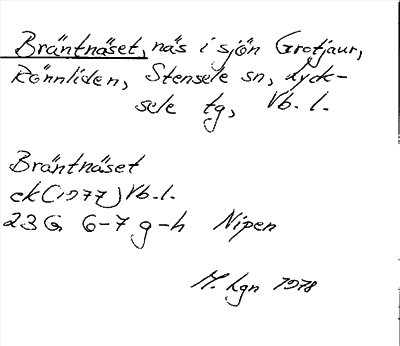 Bräntnäset, näs i sjön Grotjaur,
Rönnliden, Stensele sn, Lyck-
sele tg, Vb. l.
Bräntnäset
ek (1977) Vb. l.
23G 6-7 g-h Nipen
M. Lgn 1978